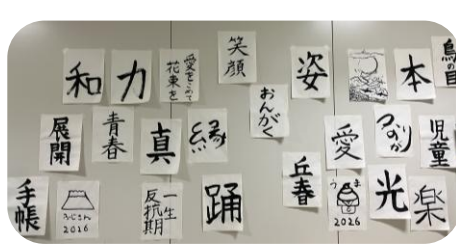 和
力
愛をこめて
花束を
笑顔
姿
本
鳥の目
展開
青春
真
縁
おんがく
愛
児童
手帳
ふじさん
2016
一生
反抗期
踊
丘春
うま
2026
光
楽